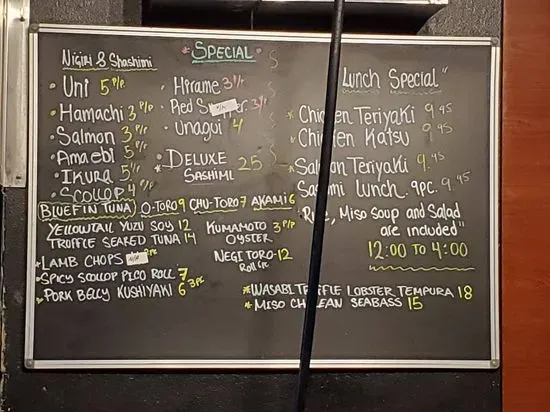 Nigiri & Shashimi
• Uni 5 P/P
• Hamachi 3 P/P
• Salmon 3 P/P
• Amaebi 5 P/P
• Ikura 5 1/P
• Scollop 4 P/P
*Special*
• Hirame 3 1/P
• Red 3 1/P
• Unagui 4
• Deluxe Sashimi 25
Bluefin Tuna O-Toro 9 Chu-Toro 7 Akami 6
Yellowtail Yuzu Soy 12
Truffle Seared Tuna 14
• Lamb Chops
• Spicy Scollop Pico Roll 7
• Pork Belly Kushiyaki 6 3pc
Kumamoto 3 P/P
Oyster
Negi Toro - 12
Roll 6pc
Lunch Special"
* Chicken Teriyaki 9.45
• Chicken Katsu 9.45
* Salmon Teriyaki 9.45
Lunch 9pc. 9.45
Miso Soup and Salad
are included"
12:00 to 4:00
* Wasabi Truffle Lobster Tempura 18
* Miso Chilean Seabass 15